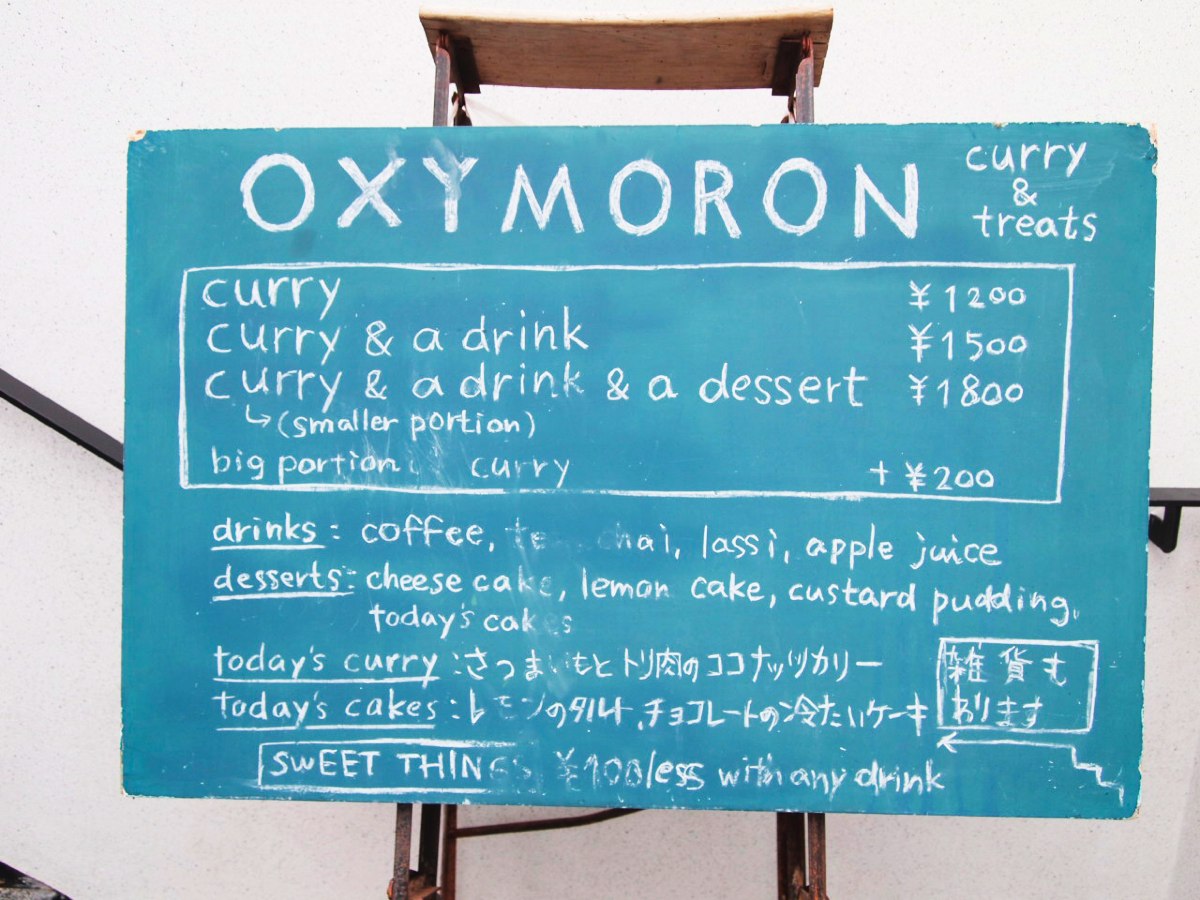 OXYMORON
curry
&
treats
curry ¥1200
curry & a drink ¥1500
curry & a drink & a dessert ¥1800
↳(smaller portion)
big portion: curry +¥200
drinks: coffee, chai, lassi, apple juice
desserts: cheese cake, lemon cake, custard pudding,
today's cakes
today's curry:さつまいもとトリ肉のココナッツカリー
today's cakes:レモンのタルト,チョコレートの冷たいケーキ
雑貨も
あります
SWEET THINGS ¥100 less with any drink